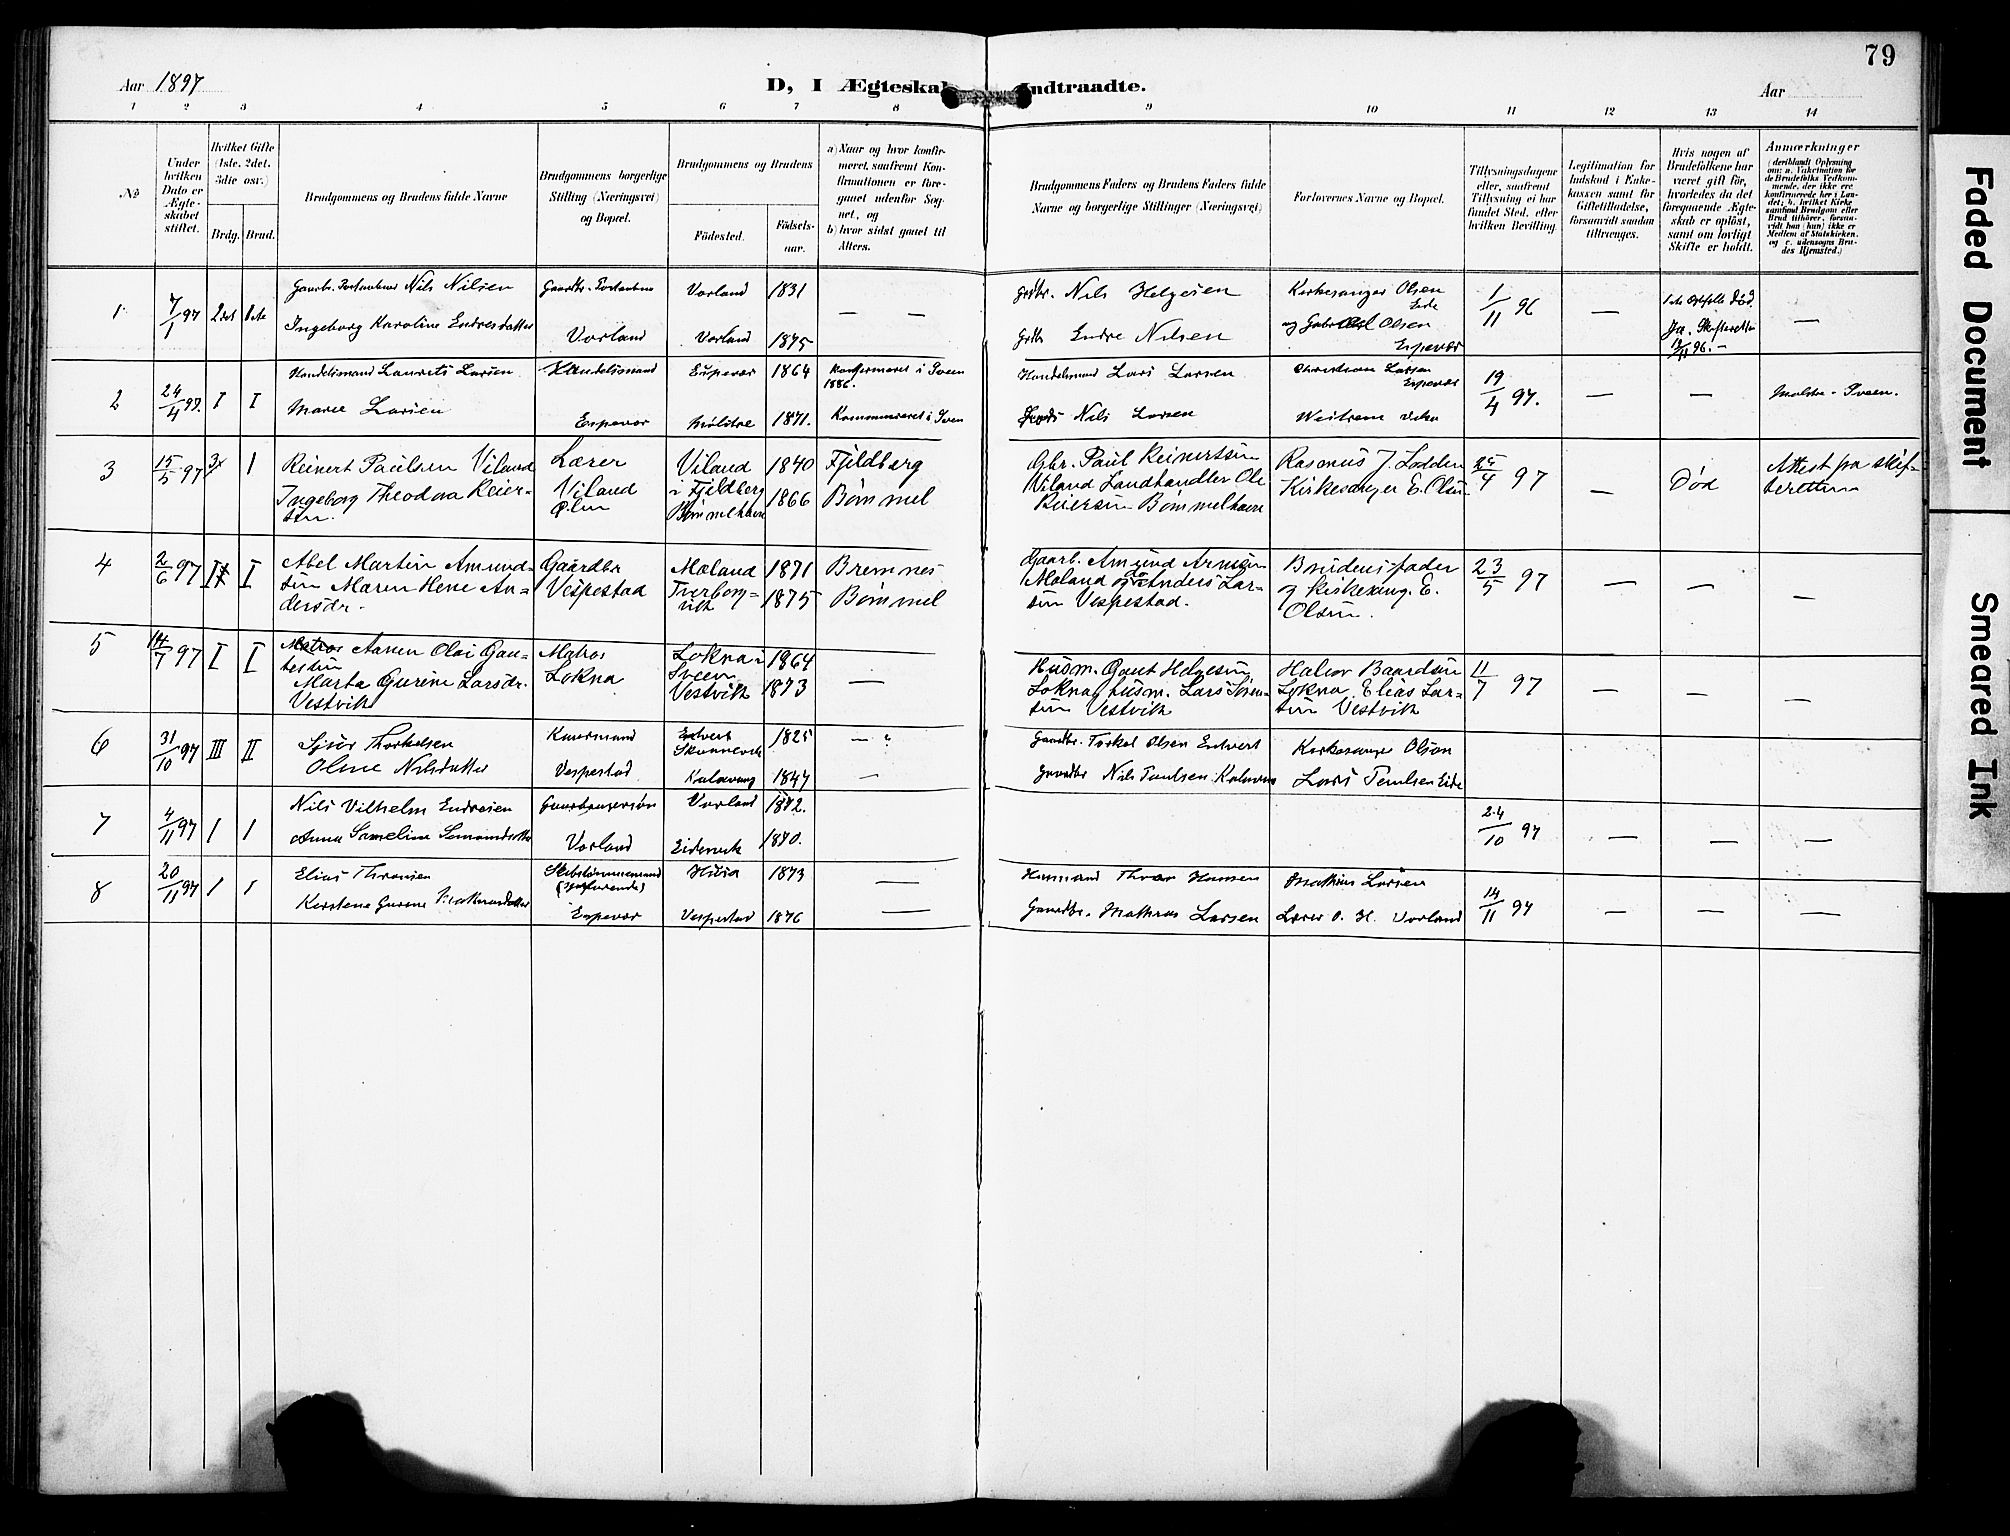 79
Aar 1897
D, I Ægteskab Indtraadte.
Aar
1 2 3 4 5 6 7 8 9 10 11 12 13 14
No
Under hvilken Dato er Ægteskabet stiftet.
Hvilket Gifte (1ste, 2det, 3die osv.)
Brdg. Brud.
Brudgommens og Brudens fulde Navne
Brudgommens borgerlige Stilling (Næringsvei) og Bopæl.
Brudgommens og Brudens
Fødested.
Fødselsaar.
a) Naar og hvor konfirmeret, saafremt Konfirmationen er foregaaet udenfor Sognet, og
b) hvor sidst gaaet til Alters.
Brudgommens Faders og Brudens Faders fulde Navne og borgerlige Stillinger (Næringsvei)
Forlovernes Navne og Bopæl.
Tillysningsdagene eller, saafremt Tillysning ei har fundet Sted, efter hvilken Bevilling.
Legitimation for Indskud i Enkekassen samt for Giftetilladelse, forsaavidt saadan tiltrænges.
Hvis nogen af Brudefolkene har været gift før, hvorledes da det foregaaende Ægteskab er opløst, samt om lovligt Skifte er holdt.
Anmærkninger
(deriblandt Oplysning om: a. Vakcination for de Brudefolks Vedkommende, der ikke ere konfirmerede her i Landet; b. hvilket Kirkesamfund Brudgom eller Brud tilhører, forsaavidt han (hun) ikke er Medlem af Statskirken, og c. udensogns Brudes Hjemsted.)
1 7/1 97 2det 1ste Nils Nilsen Vorland 1831 — — Grdbr. Nils Helgesen Kirkesanger Olsen Eide 1/11 96 — Død. —
Ingeborg Karoline Endresdatter Vorland Vorland 1875 Endre Nilsen og Olsen Espevær Ja. Skifteretten
2 24/4 97. I I Handelsmand Laurits Larsen Handelsmand Espevær 1864 Konfirmeret i Sveen Handelsmand Lars Larsen Christian Larsen Espevær 19/4 97. — — Sveen.
Marie Larsen Espevær 1871. i Sveen Nils Larsen
3 15/5 97 3 1 Reinert Paulsen Viland Lærer Viland 1840 Fjeldberg Gbr. Paul Reinertsen Rasmus J. Lodden 25/4 97 — Død Attest fra skif=
Ingeborg Theodora Reier= Viland i Fjeldberg 1866 Bømmel Viland Landhandler Ole Kirkesanger E. Olsen teretten
sen. Ølen Bømmelhavn Reiersen Bømmelhavn
4 2/6 97 I I Abel Martin Amund= Gaardbr Moland 1871 Bremnes Gaarb. Amund Brudens fader 23/5 97 — — —
sen Maren An= Vespestad 1875 Bømmel Moland og Anders Lar= og kirkesang. E.
dersdr. sen Vespestad. Olsen.
5 14/7 97 I I Matros Olai Gau= Matros Lokna i 1864 — Husm. Gaut Helgesen Halvor Baardsen 11/7 97 — — —
tesen Lokna Sveen Lokna, husm. Lars Lokna, Elias Lar=
Marta Gurine Larsdr. Vestvik 1873 Vestvik sen Vestvik
Vestvik
6 31/10 97 III II Sjur Thorkelsen 1825 — Gaardbr. Torkel Olsen Kirkesanger Olsen
Oline Nilsdatter Vespestad 1847 — Gaardbr Nils Paulsen Lars Paulsen Eide
7 4/11 97 1 1 Nils Vilhelm Endresen Vorland 1872. 24/10 97 — — —
Anna Vorland Eidesvik 1870.
8 20/11 97 1 1 Elias Skibstømmermand 1873 — Husmand Hansen Mathias Larsen 14/11 97 — — —
Gurine Espevær Vespestad 1876 — Gaardbr. Mathias Larsen Lærer O. H. Vorland
Faded Document
Smeared Ink